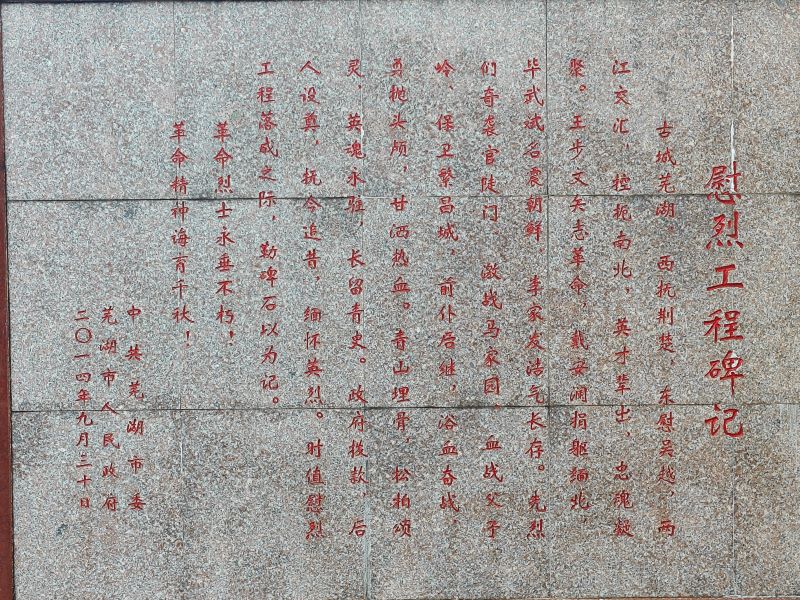 慰烈工程碑记
古城芜湖，西抚荆楚，东慰吴越，两
江交汇，控扼南北，英才辈出，忠魂凝
聚。王步文矢志革命，戴安澜捐躯缅北，
毕武斌名震朝鲜，李家发浩气长存。先烈
们奇袭官陡门，激战马家园，血战父子
岭，保卫繁昌城，前仆后继，浴血奋战，
勇抛头颅，甘洒热血。青山埋骨，松柏颂
灵，英魂永驻，长留青史。政府拨款，后
人设奠，抚今追昔，缅怀英烈。时值慰烈
工程落成之际，勒碑石以为记。
革命烈士永垂不朽！
革命精神诲育千秋！
中共芜湖市委
芜湖市人民政府
二〇一四年九月三十日